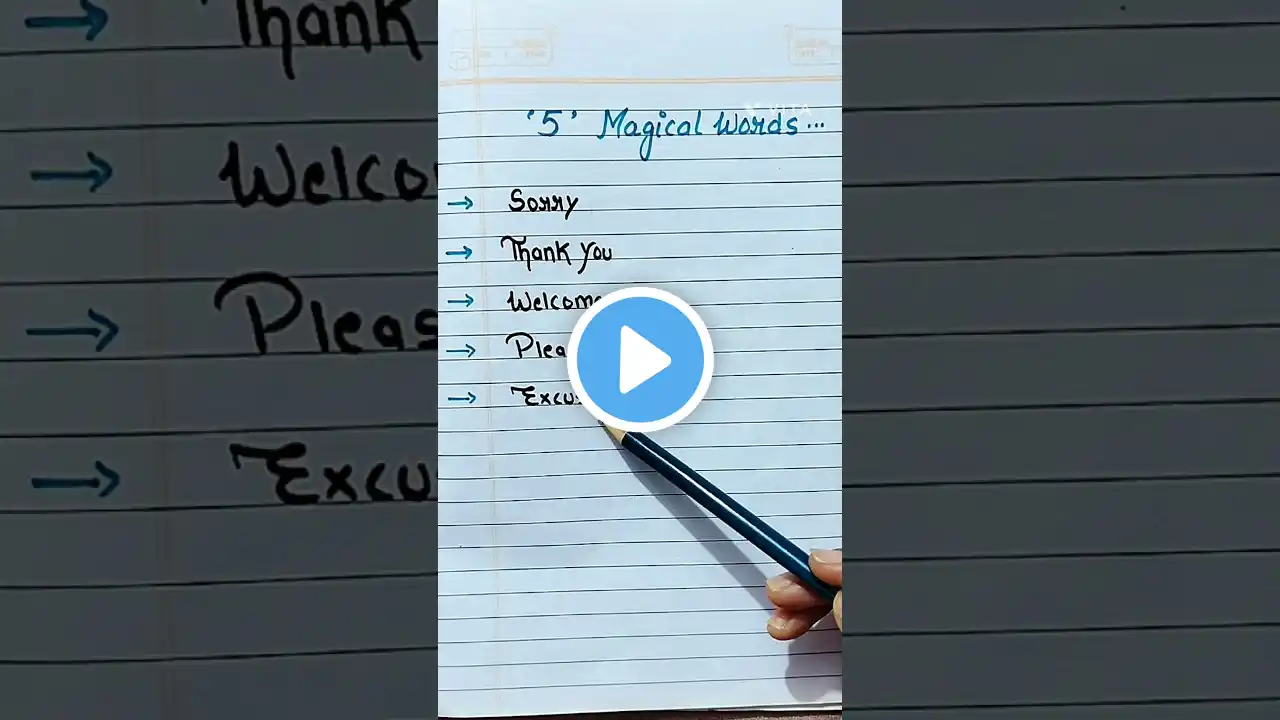 '5' Magical Words...
→ Sorry
→ Thank you
→ Welcome
→
→